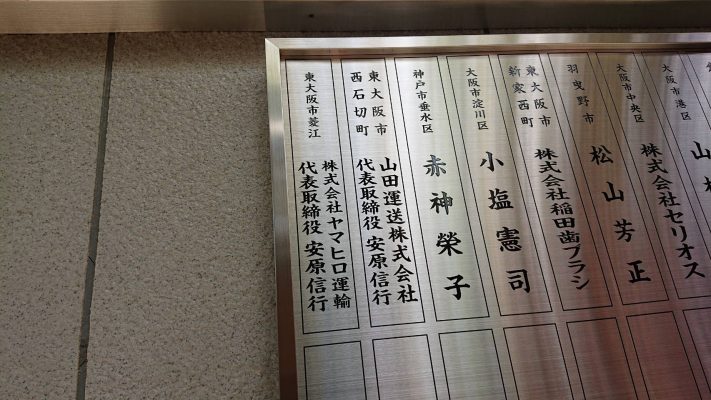 大阪市港区
山
大阪市中央区
株式会社セリオス
羽曳野市
松山芳正
東大阪市
新家西町
株式会社稲田歯ブラシ
大阪市淀川区
小塩憲司
神戸市垂水区
赤神榮子
東大阪市
西石切町
山田運送株式会社
代表取締役 安原信行
東大阪市菱江
株式会社ヤマヒロ運輸
代表取締役 安原信行